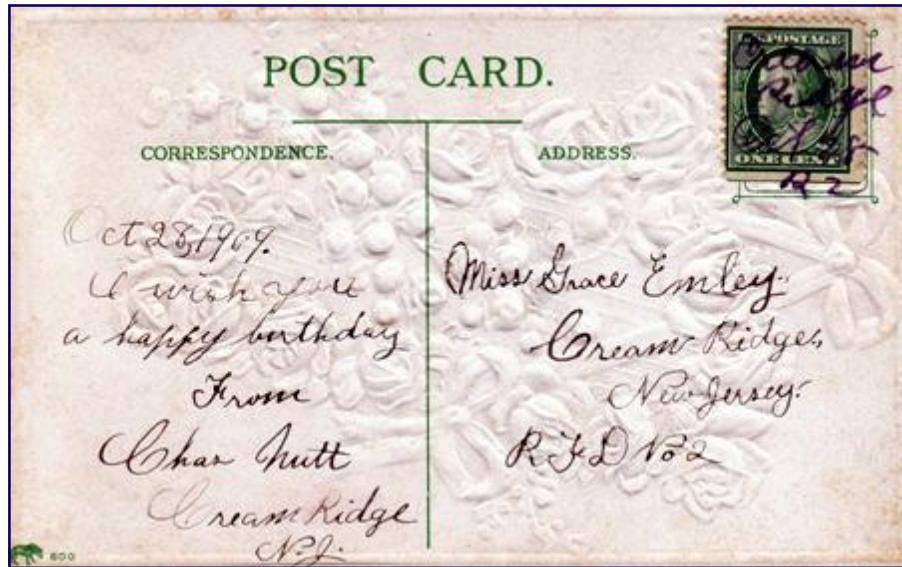 POST CARD.
CORRESPONDENCE.
ADDRESS.
U.S. POSTAGE
ONE CENT
Cream
Ridge
Oct 28
R 2
Oct 28, 1909.
I wish you
a happy birthday
From
Chas Nutt
Cream Ridge
N.J.
Miss Grace Emley.
Cream Ridge,
New Jersey.
R.F.D No 2
600